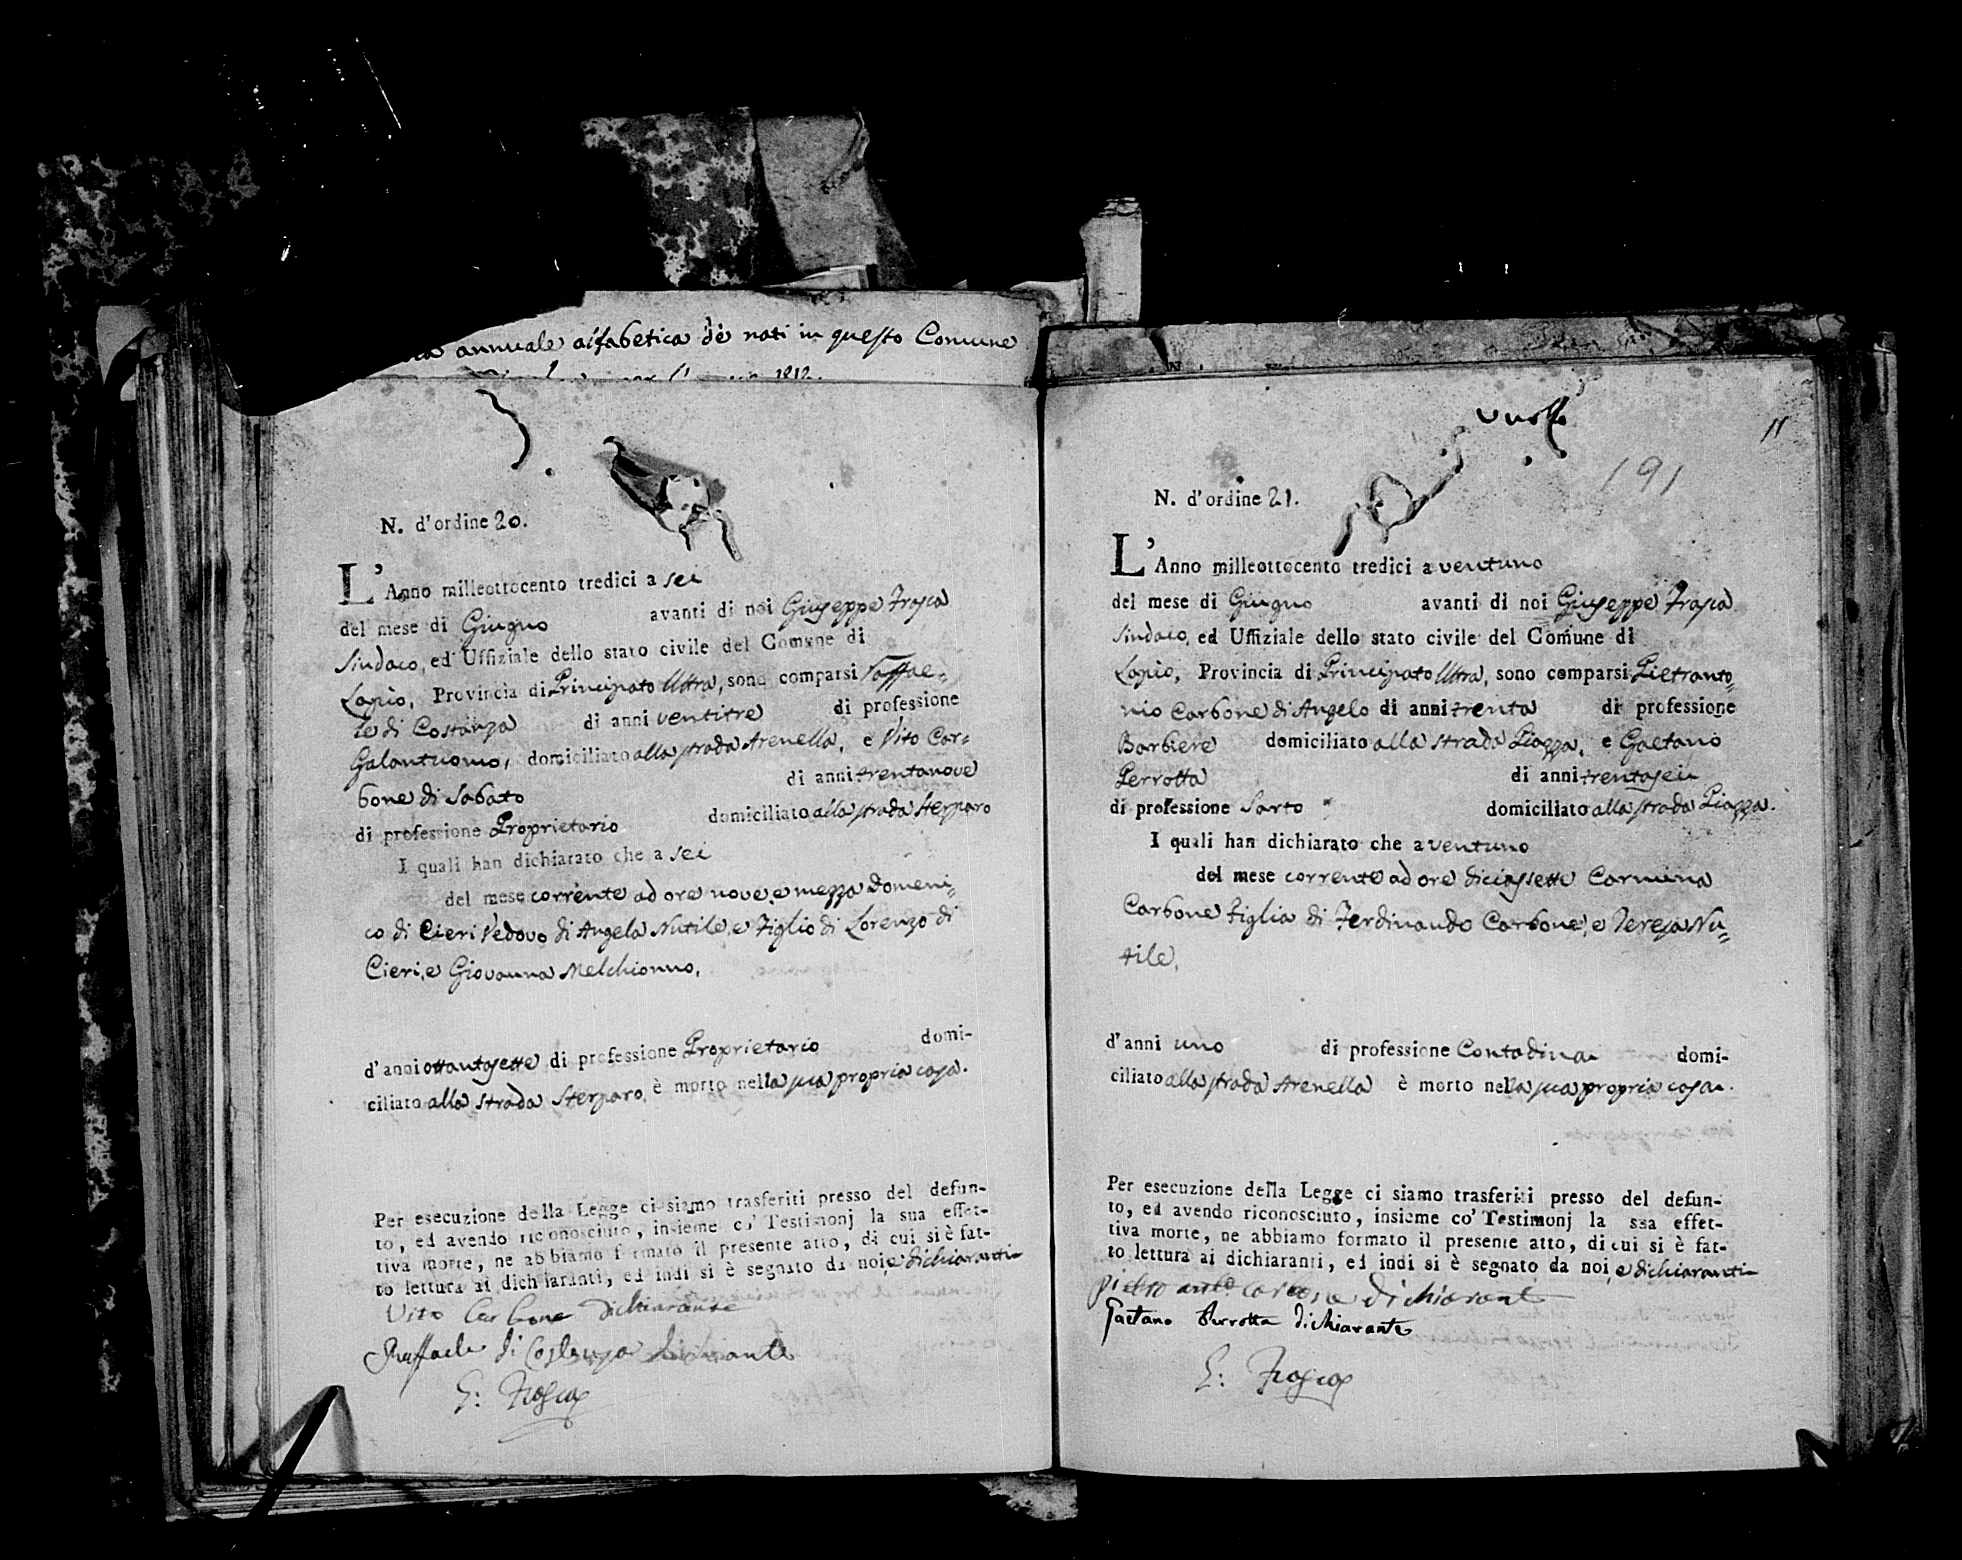 annuale alfabetica de' nati in questo Comune
1812.
N. d'ordine 20.
L'Anno milleottocento tredici a sei
del mese di Giugno avanti di noi Giuseppe Frasca
Sindaco, ed Uffiziale dello stato civile del Comune di
Lapio, Provincia di Principato Ultra, sono comparsi Raffae=
le di Costanza di anni ventitre di professione
Galantuomo, domiciliato alla strada Arenella, e Vito Car=
bone di Sabato di anni trentanove
di professione Proprietario domiciliato alla strada Sterparo
I quali han dichiarato che a sei
del mese corrente ad ore nove, e mezza Domeni=
co di Cieri Vedovo di Angela Nutile, e Figlio di Lorenzo di
Cieri, e Giovanna Melchionno,
d'anni ottantasette di professione Proprietario domi-
ciliato alla strada Sterparo è morto nella sua propria casa.
Per esecuzione della Legge ci siamo trasferiti presso del defun-
to, ed avendo riconosciuto, insieme co' Testimonj la sua effet-
tiva morte, ne abbiamo formato il presente atto, di cui si è fat-
to lettura ai dichiaranti, ed indi si è segnato da noi, e dichiaranti
Vito Carbone dichiarante
Raffaele di Costanza dichiarante
G: Frasca
11
191
N. d'ordine 21.
L'Anno milleottocento tredici a ventuno
del mese di Giugno avanti di noi Giuseppe Frasca
Sindaco, ed Uffiziale dello stato civile del Comune di
Lapio, Provincia di Principato Ultra, sono comparsi Pietranto=
nio Carbone di Angelo di anni trenta di professione
Barbiere domiciliato alla strada Piazza, e Gaetano
Perrotta di anni trentasei
di professione Sarto domiciliato alla strada Piazza.
I quali han dichiarato che a ventuno
del mese corrente ad ore diciassette Carmina
Carbone Figlia di Ferdinando Carbone, e Teresa Nu=
tile,
d'anni uno di professione Contadina domi-
ciliato alla strada Arenella è morto nella sua propria casa.
Per esecuzione della Legge ci siamo trasferiti presso del defun-
to, ed avendo riconosciuto, insieme co' Testimonj la sua effet-
tiva morte, ne abbiamo formato il presente atto, di cui si è fat-
to lettura ai dichiaranti, ed indi si è segnato da noi, e dichiaranti
Pietro ant.o carbone dichiarante
Gaetano Perrotta dichiarante
G: Frasca